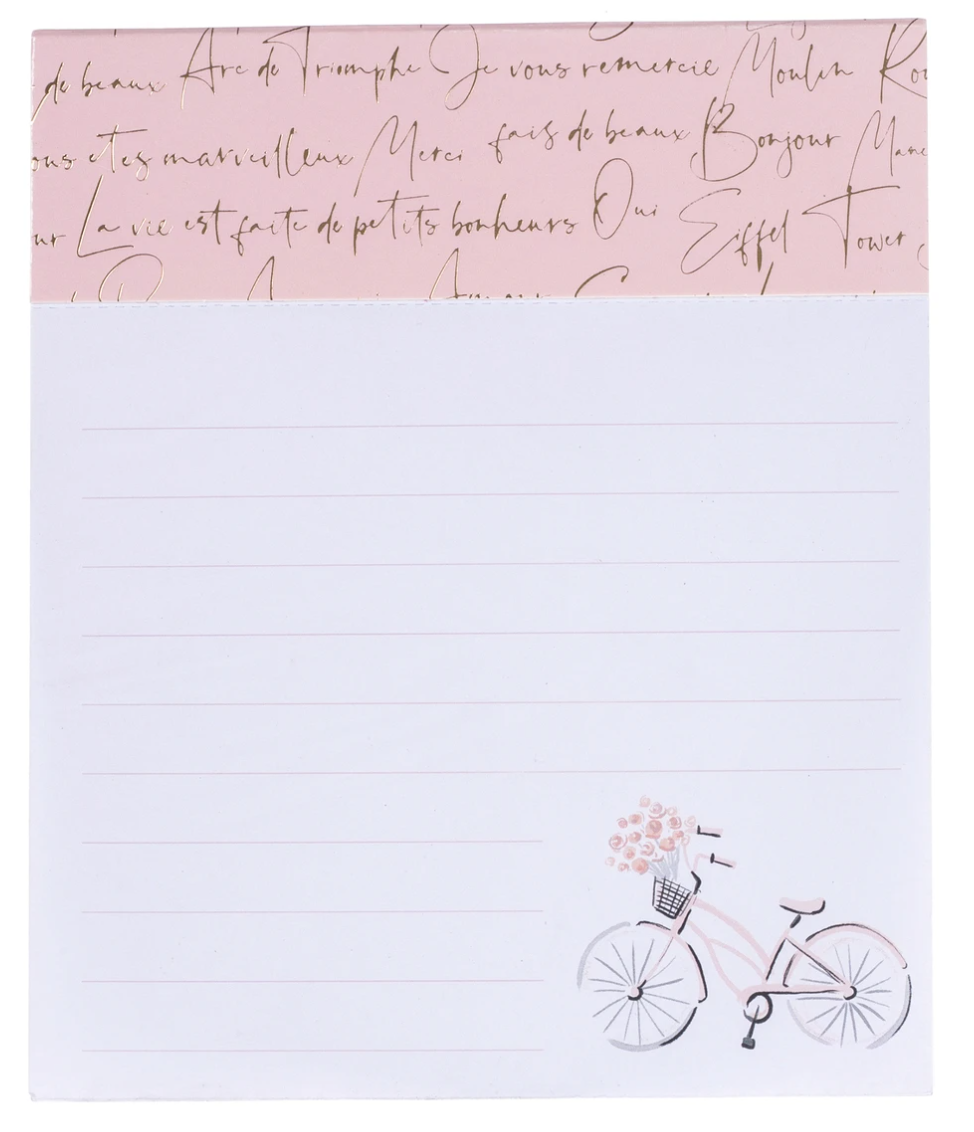 de beaux Arc de Triomphe Je vous remercie Moulin Rou
ous etes marveilleux Merci fais de beaux Bonjour
ur La vie est faite de petits bonheurs Oui Eiffel Tower